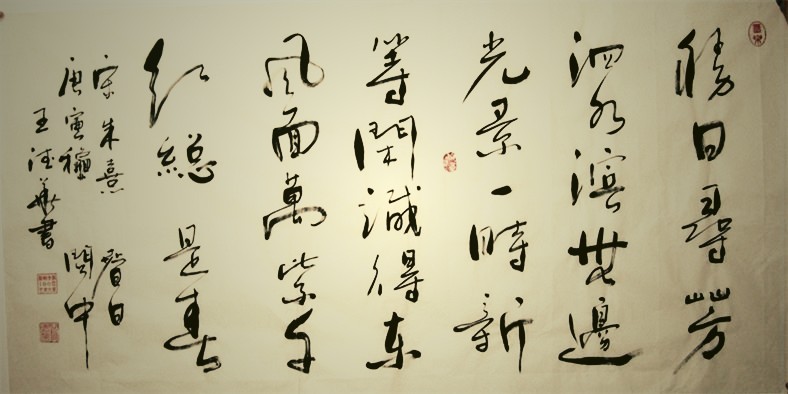 勝日尋芳
泗水濱無邊
光景一時新
等閑識得東
風面萬紫千
紅総是春
宋朱熹 春日
庚寅穐 閩中
王 華書